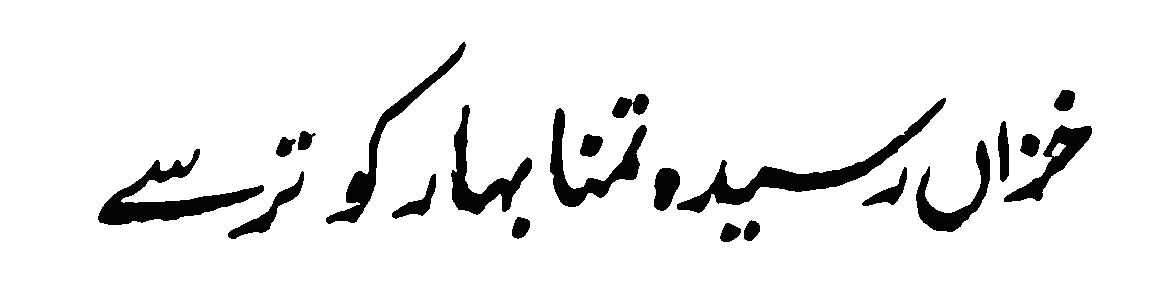 خزاں رسیدہ تمنا بہار کو ترسے